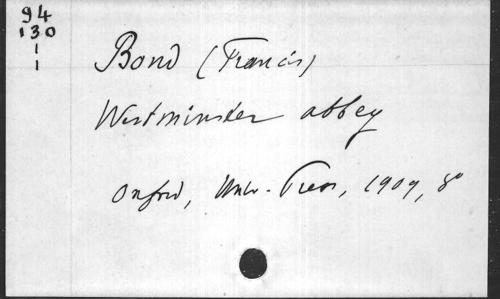 94
130
1
1
Bond (Francis)
Westminster abbey
Oxford, Univ. Press, 1909, 8°